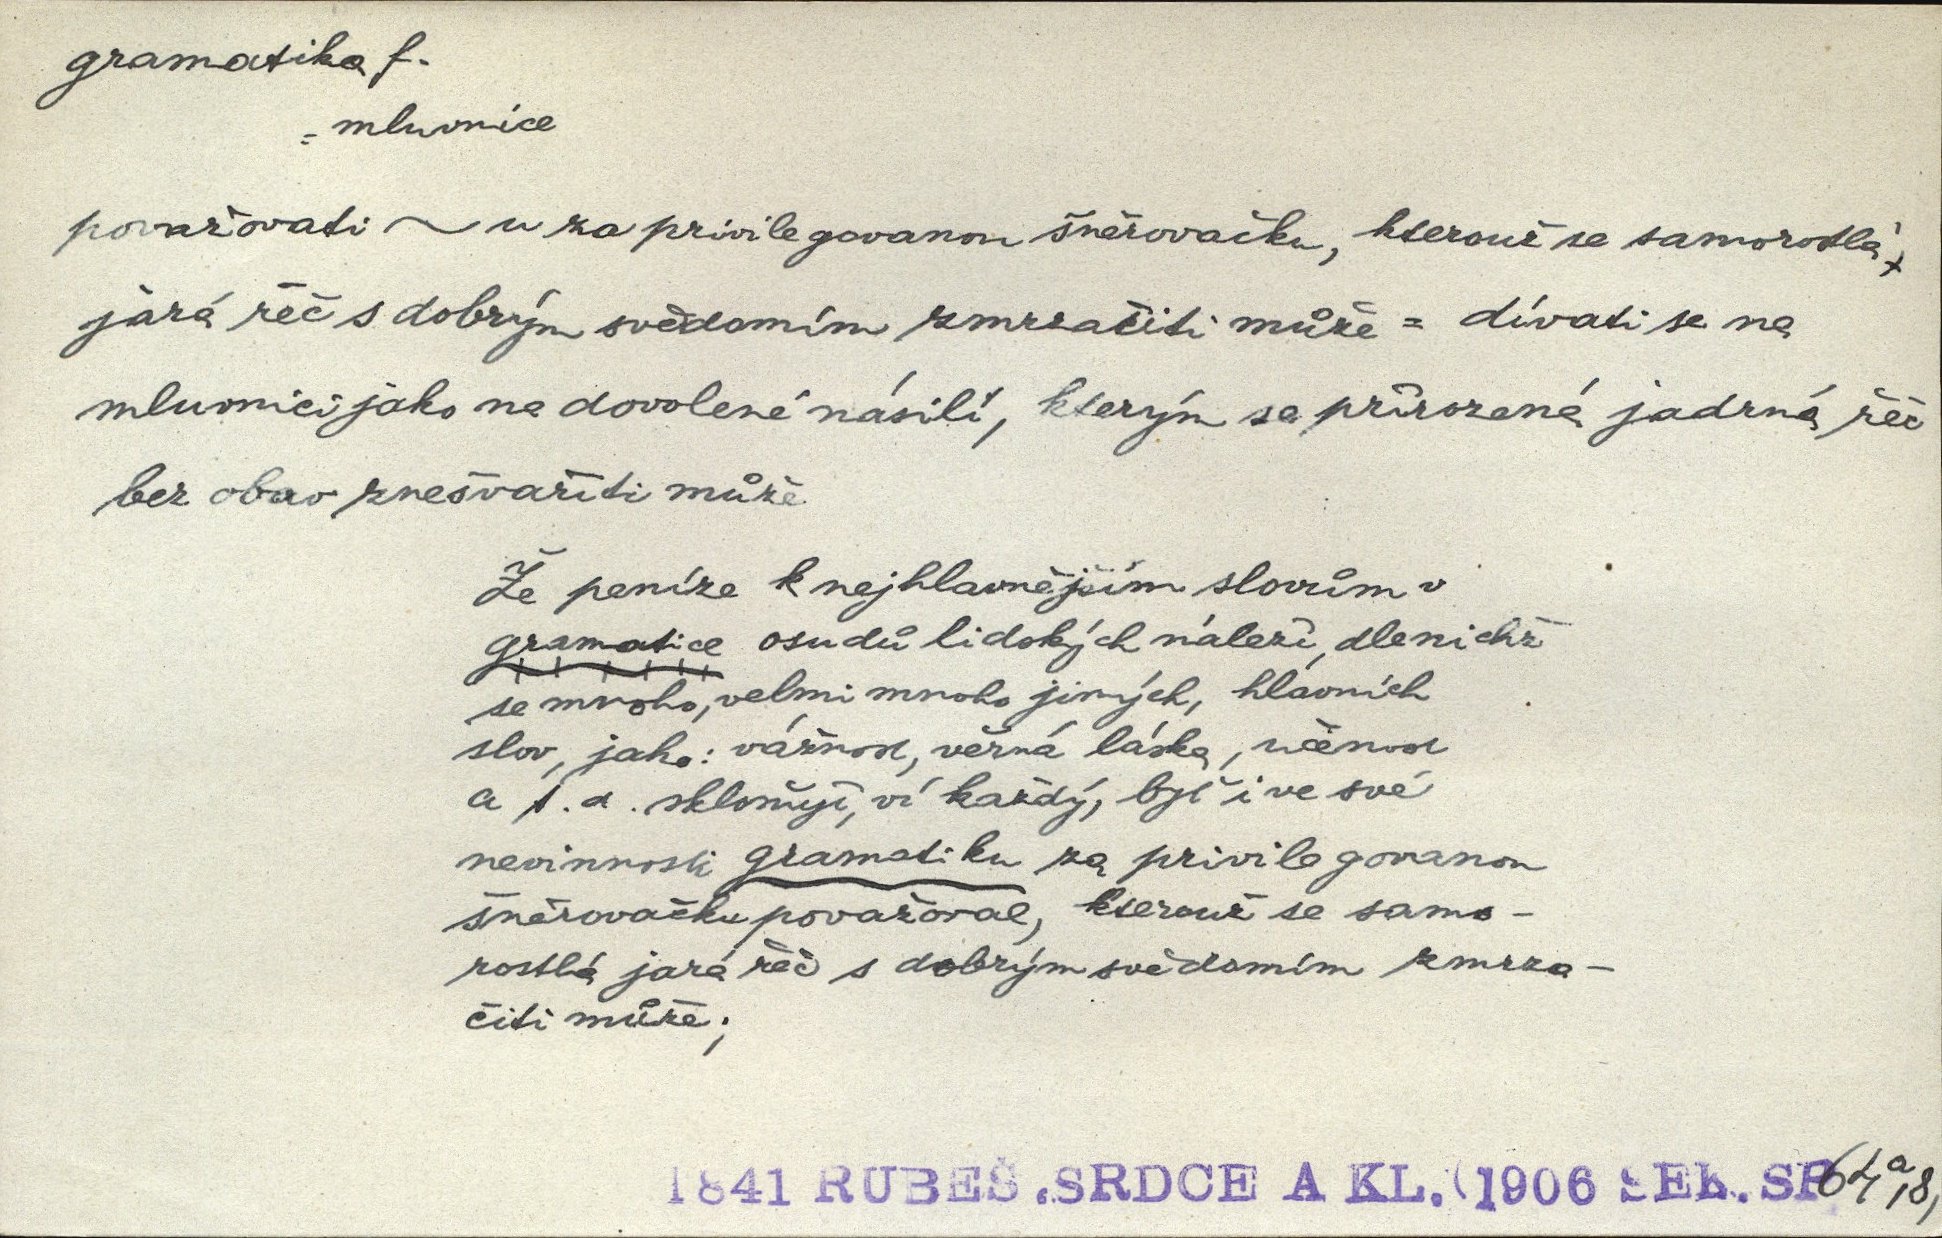 gramatika f.
= mluvnice
považovati ~u za privilegovanou šněrovačku, kterouž se samorostlá,
jará řeč s dobrým svědomím zmrzačiti může = dívati se na
mluvnici jako na dovolené násilí, kterým se přirozená jadrná řeč
bez obav znešvařiti může
Že peníze k nejhlavnějším slovům v
gramatice osudů lidských náleží, dle nichž
se mnoho, velmi mnoho jiných, hlavních
slov, jako: vážnost, věrná láska, učenost
a t.d. skloňují, ví každý, byť i ve své
nevinnosti gramatiku za privilegovanou
šněrovačku považoval, kterouž se samo-
rostlá jará řeč s dobrým svědomím zmrza-
čiti může;
1841 RUBEŠ, SRDCE A KL. (1906 SEB. SP.